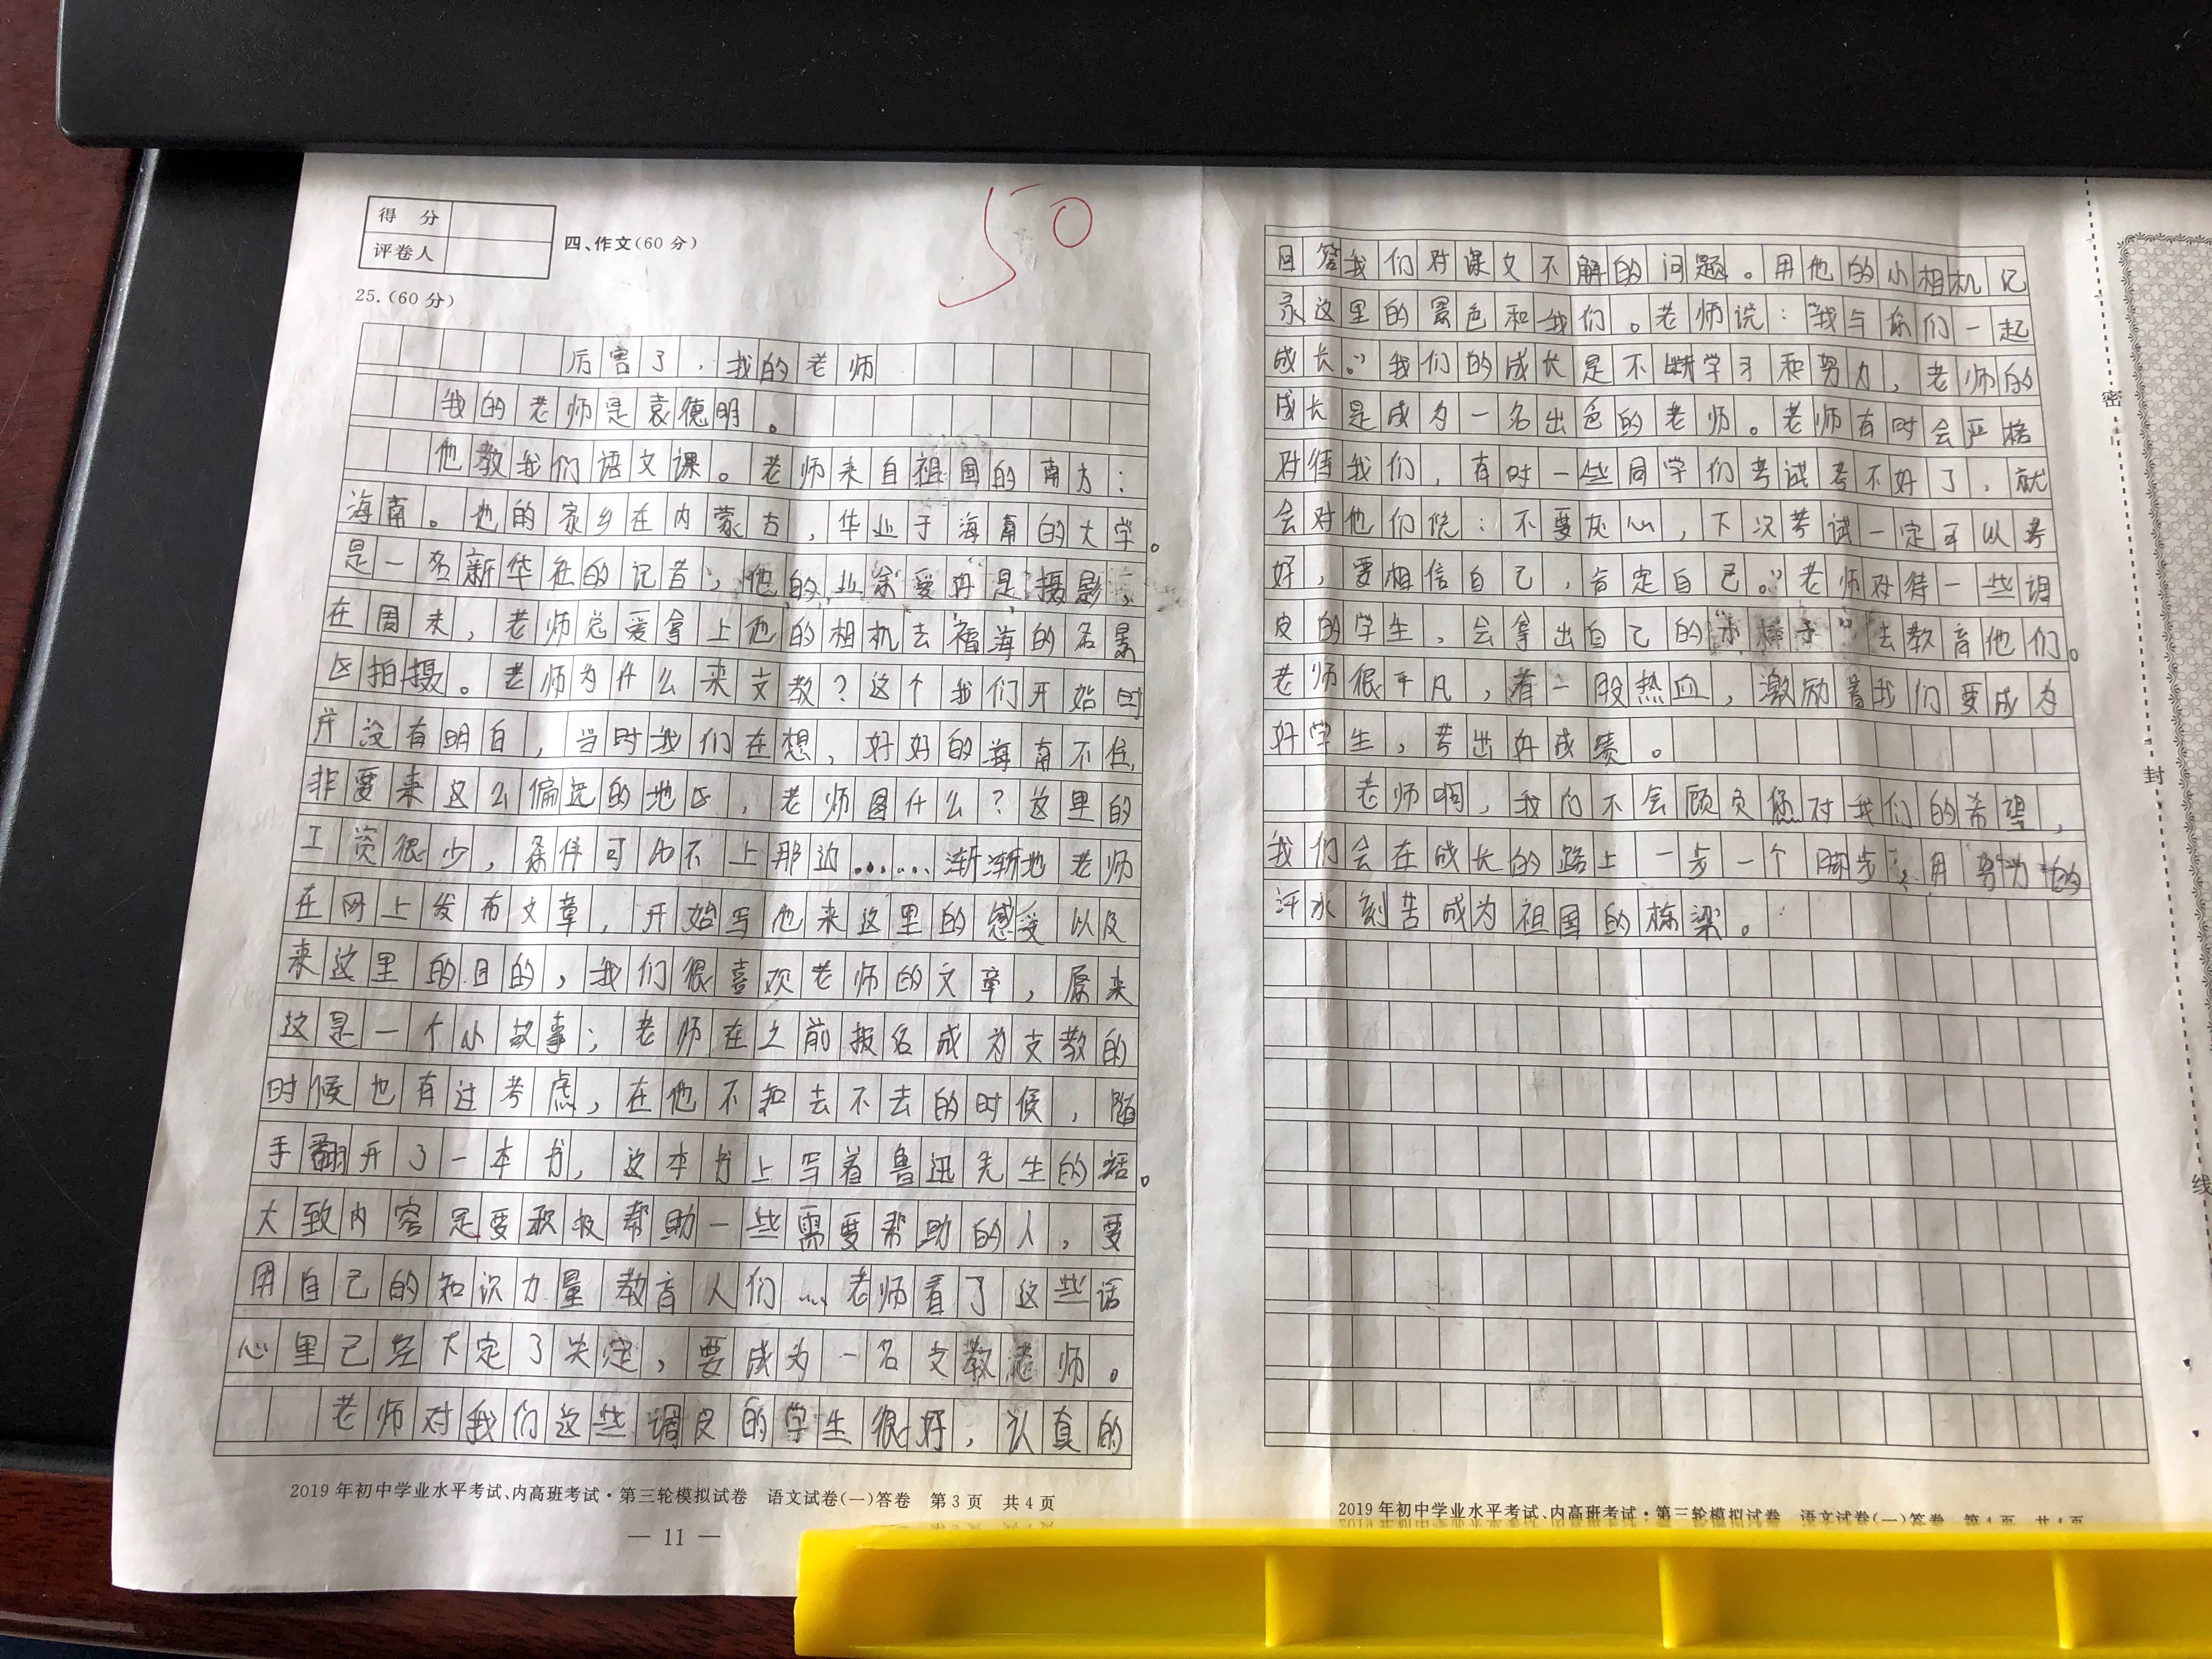 得分
评卷人
四、作文(60分)
50
25.(60分)
厉害了，我的老师
我的老师是袁德明。
他教我们语文课。老师来自祖国的南方：
海南。他的家乡在内蒙古，毕业于海南的大学。
是一名新华社的记者；他的业余爱好是摄影，
在周末，老师总爱拿上他的相机去福海的名景
区拍摄。老师为什么来支教？这个我们开始时
并没有明白，当时我们在想，好好的海南不住，
非要来这么偏远的地区，老师图什么？这里的
工资很少，条件可比不上那边……渐渐地老师
在网上发布文章，开始写他来这里的感受以及
来这里的目的，我们很喜欢老师的文章，原来
这是一个小故事；老师在之前报名成为支教的
时候也有过考虑，在他不知去不去的时候，随
手翻开了一本书，这本书上写着鲁迅先生的话。
大致内容是要积极帮助一些需要帮助的人，要
用自己的知识力量教育人们…老师看了这些话
心里已经下定了决定，要成为一名支教老师。
老师对我们这些调皮的学生很好，认真的
回答我们对课文不解的问题。用他的小相机记
录这里的景色和我们。老师说：“我与你们一起
成长。”我们的成长是不断学习和努力，老师的
成长是成为一名出色的老师。老师有时会严格
对待我们，有时一些同学们考试考不好了，就
会对他们说：不要灰心，下次考试一定可以考
好，要相信自己，肯定自己。”老师对待一些调
皮的学生，会拿出自己的“小棒子”去教育他们。
老师很平凡，有一股热血，激励着我们要成为
好学生，考出好成绩。
老师啊，我们不会顾负您对我们的希望，
我们会在成长的路上一步一个脚步，用努力的
汗水刻苦成为祖国的栋梁。
2019年初中学业水平考试、内高班考试·第三轮模拟试卷 语文试卷(一)答卷 第3页 共4页
— 11 —
2019年初中学业水平考试、内高班考试·第三轮模拟试卷 语文试卷(一)答卷 第4页 共4页
密
封
线